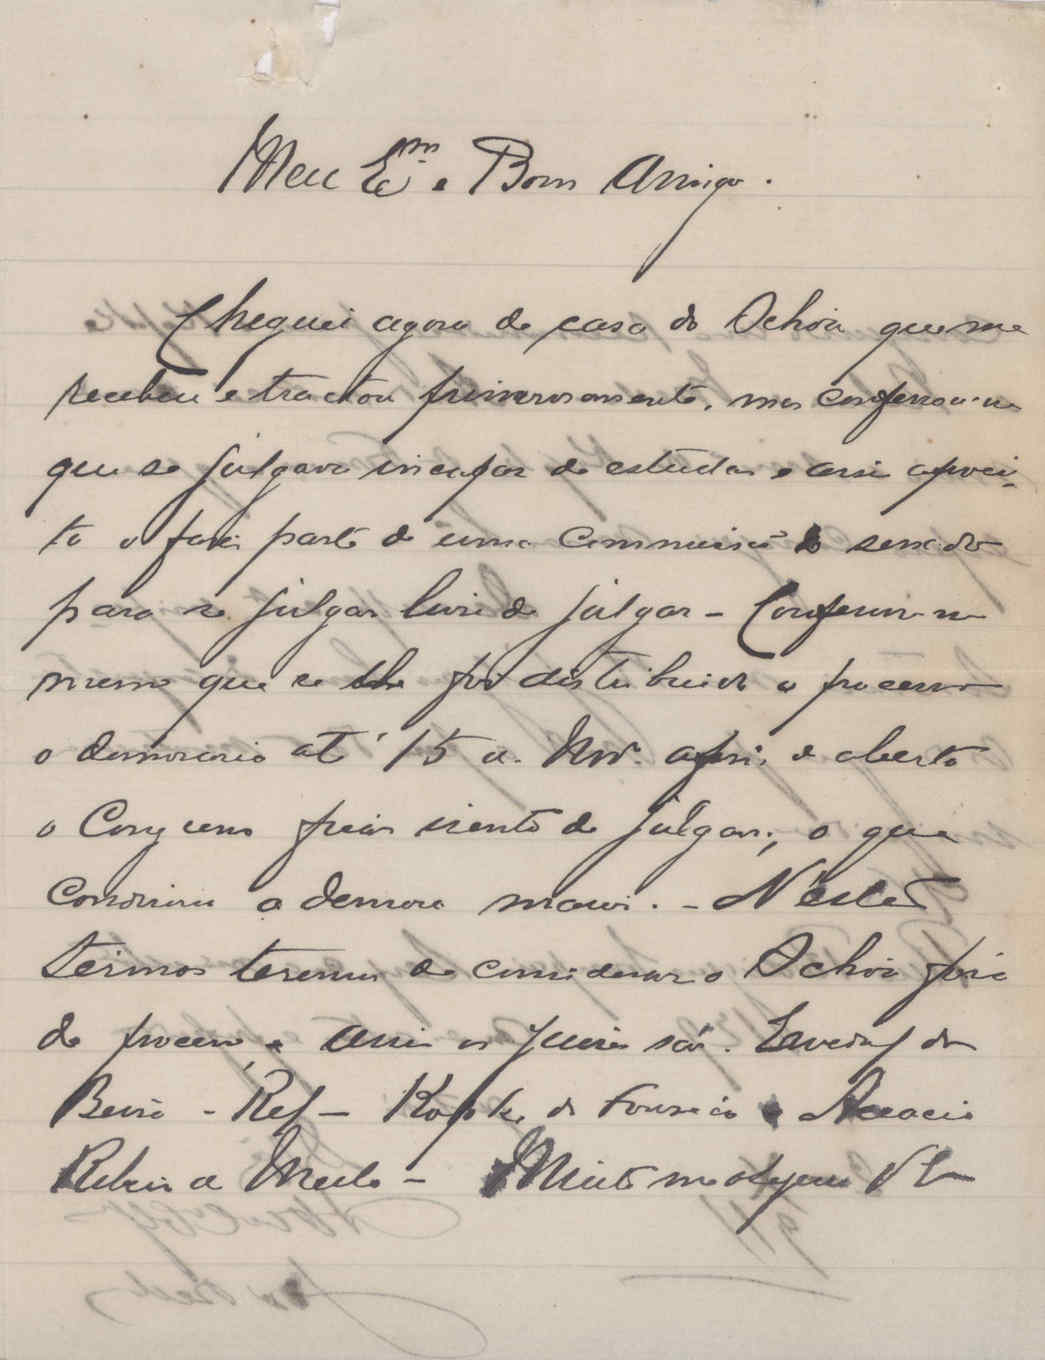 Meu Exmo e Bom Amigo.
Cheguei agora de casa do Ochôa que me
recebeu e tractou primorosamente, mas confessou-me
que se julgava incapaz de estudar e assi aprovei-
ta o fazer parte de uma Commissão do senado
para se julgar livre de julgar - Confessou-me
mesmo que se lhe foi distribuido o processo
o demoraria até 15 a Nov. após e aberto
o Congresso ficar isento de julgar; o que
a demora maior. - N'estes
termos teremos de considerar o Ochôa fóra
do processo, e assi os Juizes são. Encerrado
- Rel - Kopke da Fonseca e Acacio
Ribeiro Mello - Muito me obsequeia V Ex